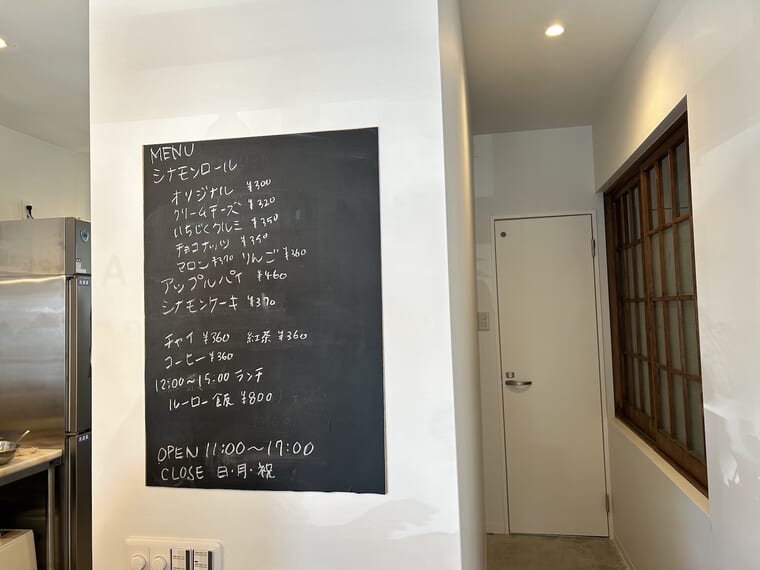 MENU
シナモンロール
オリジナル ¥300
クリームチーズ ¥320
いちじくクルミ ¥350
チョコナッツ ¥350
マロン ¥370 りんご ¥360
アップルパイ ¥460
シナモンケーキ ¥370
チャイ ¥360 紅茶 ¥360
コーヒー ¥360
12:00～15:00 ランチ
ルーロー飯 ¥800
OPEN 11:00～17:00
CLOSE 日・月・祝